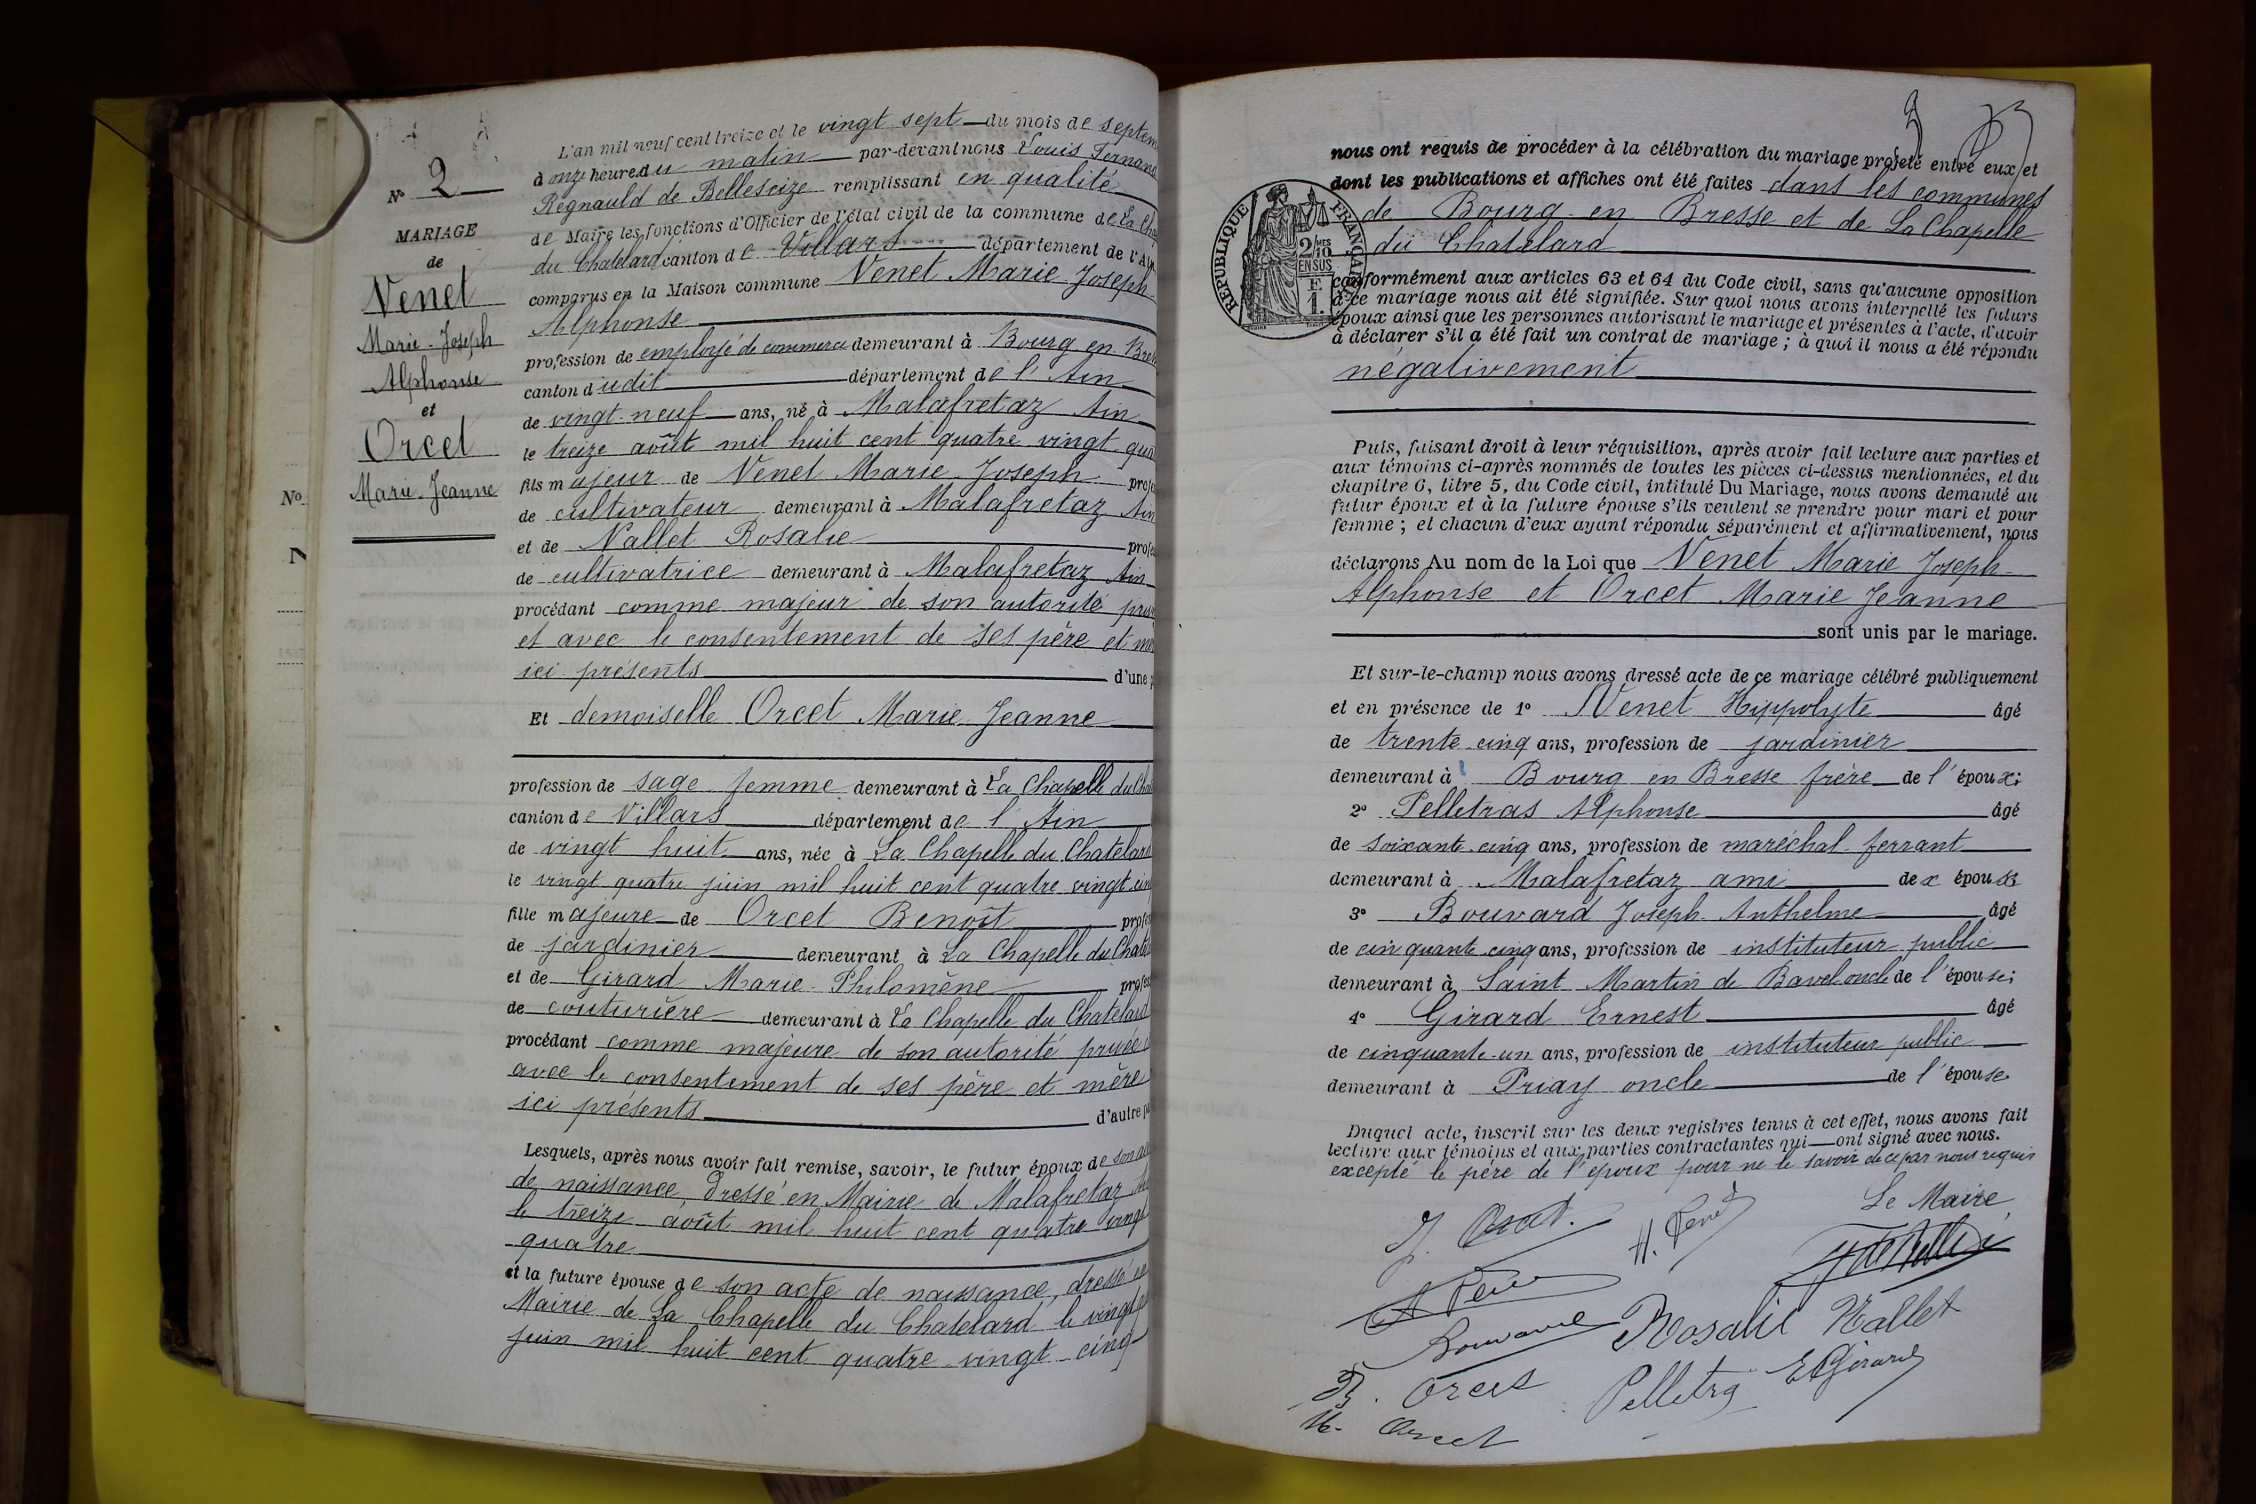 N° 2
MARIAGE
de
Venet
Marie-Joseph
Alphonse
et
Orcet
Marie-Jeanne
No
N
L'an mil neuf cent treize et le vingt sept du mois de septem
à onze heures du matin par-devant nous Louis Fernand
Régnauld de Bellescize remplissant en qualité
de Maire les fonctions d'Officier de l'état civil de la commune de La Cha
du Chatelard canton de Villars département de l'Ain
comparus en la Maison commune Venet Marie Joseph
Alphonse
profession de employé de commerce demeurant à Bourg en Bre
canton dudit département de l'Ain
de vingt-neuf ans, né à Malafretaz Ain
le treize août mil huit cent quatre vingt qua
fils majeur de Venet Marie Joseph profe
de cultivateur demeurant à Malafretaz Ain
et de Vallet Rosalie profe
de cultivatrice demeurant à Malafretaz Ain
procédant comme majeur de son autorité priv
et avec le consentement de ses père et m
ici présents d'une p
Et demoiselle Orcet Marie Jeanne
profession de sage femme demeurant à La Chapelle du Cha
canton de Villars département de l'Ain
de vingt huit ans, née à La Chapelle du Chatelard
le vingt quatre juin mil huit cent quatre vingt cinq
fille majeure de Orcet Benoît profes
de jardinier demeurant à La Chapelle du Chate
et de Girard Marie-Philomène profes
de couturière demeurant à La Chapelle du Chatelard
procédant comme majeure de son autorité privée
avec le consentement de ses père et mère
ici présents d'autre pa
Lesquels, après nous avoir fait remise, savoir, le futur époux de son
de naissance, dressé en Mairie de Malafretaz
le treize août mil huit cent quatre vingt
quatre
et la future épouse de son acte de naissance, dressé en
Mairie de La Chapelle du Chatelard le vingt
juin mil huit cent quatre vingt-cinq
nous ont requis de procéder à la célébration du mariage projeté entre eux et
dont les publications et affiches ont été faites dans les communes
de Bourg-en Bresse et de La Chapelle
du Chatelard
RÉPUBLIQUE FRANÇAISE
2/10 MES
EN SUS
F.
1.
conformément aux articles 63 et 64 du Code civil, sans qu'aucune opposition
à ce mariage nous ait été signifiée. Sur quoi nous avons interpellé les futurs
époux ainsi que les personnes autorisant le mariage et présentes à l'acte, d'avoir
à déclarer s'il a été fait un contrat de mariage ; à quoi il nous a été répondu
négativement
Puis, faisant droit à leur réquisition, après avoir fait lecture aux parties et
aux témoins ci-après nommés de toutes les pièces ci-dessus mentionnées, et du
chapitre 6, titre 5, du Code civil, intitulé Du Mariage, nous avons demandé au
futur époux et à la future épouse s'ils veulent se prendre pour mari et pour
femme ; et chacun d'eux ayant répondu séparément et affirmativement, nous
déclarons Au nom de la Loi que Venet Marie Joseph
Alphonse et Orcet Marie Jeanne
sont unis par le mariage.
Et sur-le-champ nous avons dressé acte de ce mariage célébré publiquement
et en présence de 1° Venet Hippolyte âgé
de trente-cinq ans, profession de jardinier
demeurant à Bourg en Bresse frère de l'époux;
2° Pelletras Alphonse âgé
de soixante-cinq ans, profession de maréchal-ferrant
demeurant à Malafretaz ami de x époux
3° Bouvard Joseph-Anthelme âgé
de cinquante-cinq ans, profession de instituteur public
demeurant à Saint Martin de Bavel oncle de l'épouse;
4° Girard Ernest âgé
de cinquante-un ans, profession de instituteur public
demeurant à Priay oncle de l'épouse
Duquel acte, inscrit sur les deux registres tenus à cet effet, nous avons fait
lecture aux témoins et aux parties contractantes qui ont signé avec nous.
excepté le père de l'époux pour ne le savoir de ce par nous requis
Le Maire
J. Orcet.
H. Venet
Bouvard
Rosalie Vallet
B. Orcet
Pelletra
E Girard
M. Orcet